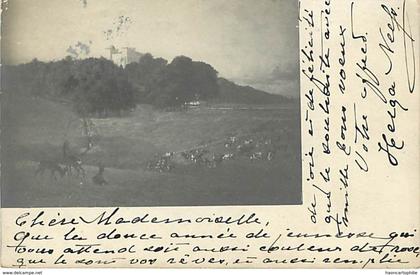 Chère Mademoiselle,
Que la douce année de jeunesse qui
vous attend soit aussi couleur de rose
que le sont vos rêves, et aussi remplie
de joie et de félicité
que le souhaite avec
mille bons voeux
Votre
Helga
delcampe.net